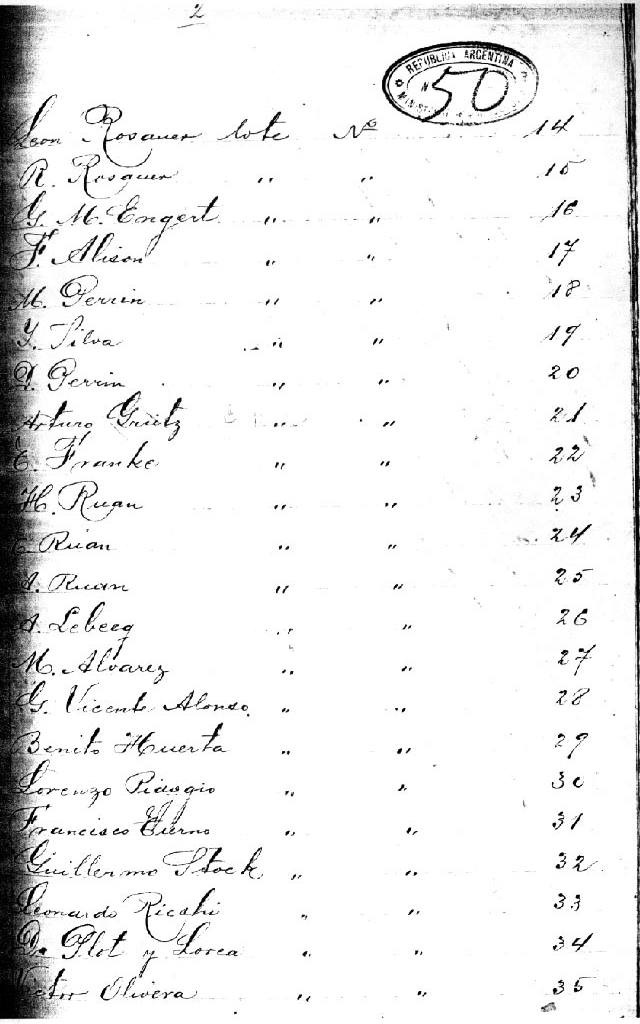 2
REPUBLICA ARGENTINA
Nº 50
Leon Rosauer lote Nº 14
R. Rosauer " " 15
G. M. Engert " " 16
F. Alison " " 17
M. Perrin " " 18
Y. Silva " " 19
D. Perrin " " 20
Arturo Grütz " " 21
E. Franke " " 22
H. Ruan " " 23
Ruan " " 24
A. Ruan " " 25
A. Lebecq " " 26
M. Alvarez " " 27
G. Vicente Alonso " " 28
Benito Huerta " " 29
Lorenzo Piaggio " " 30
Francisco " " 31
Guillermo Stock " " 32
Leonardo " " 33
Plot y Lorea " " 34
Victor Olivera " " 35